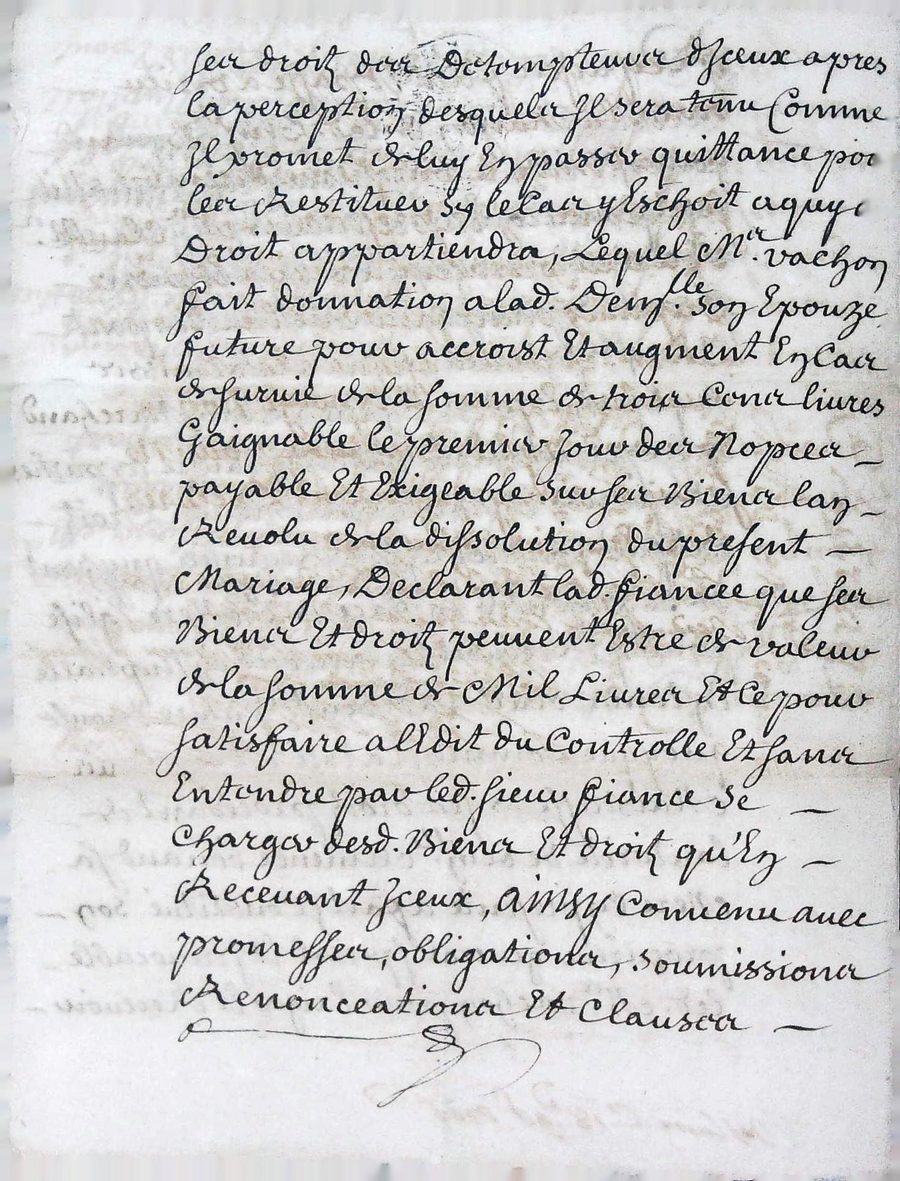 ses droitz des Detempteurs d'Iceux apres
la perception desquels Il sera tenu Comme
Il promet de luy En passer quittance po
les Restituer sy le Cas y Eschoit a quy
Droit appartiendra, Lequel Mr. vachon
fait donnation a lad. Demlle. son Epouze
future pour accroist Et augment En Cas
de survie de la somme de trois Cens livres
Gaignable le premier Jour des Nopces _
payable Et Exigeable sur ses Biens lan _
Revolu de la dissolution du present —
Mariage, Declarant lad. fiancée que ses
Biens Et droitz peuvent Estre de valeur
de la somme de Mil Livres Et Ce pour
satisfaire a lEdit du Controlle Et sans
Entendre par led. sieur fiancé se —
Charger desd. Biens Et droitz qu'En —
Recevant Iceux, ainsy Convenu avec
promesses, obligations, soumissions
Renonceations Et Clauses —